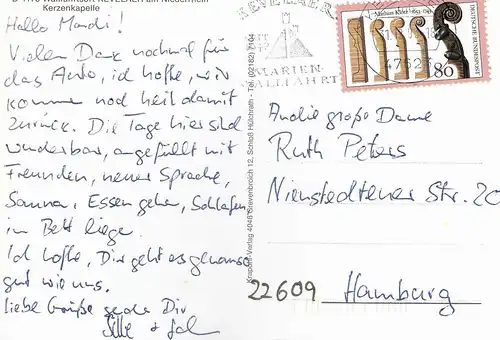 D-4178 Wallfahrtsort KEVELAER am Niederrhein
Kerzenkapelle
Hallo Mandi!
Vielen Dank nochmal für
das Auto, ich hoffe, wir
kommen noch heil damit
zurück. Die Tage hier sind
wunderbar, angefüllt mit
Freunden, neuer Sprache,
Sauna, Essen gehen, Schlafen
im Bett liege.
Ich hoffe, Dir geht es genauso
gut wie uns.
liebe Grüße sende Dir
Silke +
Verlag 4048 Grevenbroich 12, Schloß Hülchrath - Tel. (02182) 7104
KEVELAER
MARIEN-
WALLFAHRT
47623
Mathias Klotz 1653-1743
DEUTSCHE BUNDESPOST
80
An die große Dame
Ruth Peters
Nienstedtener Str. 20
22609 Hamburg